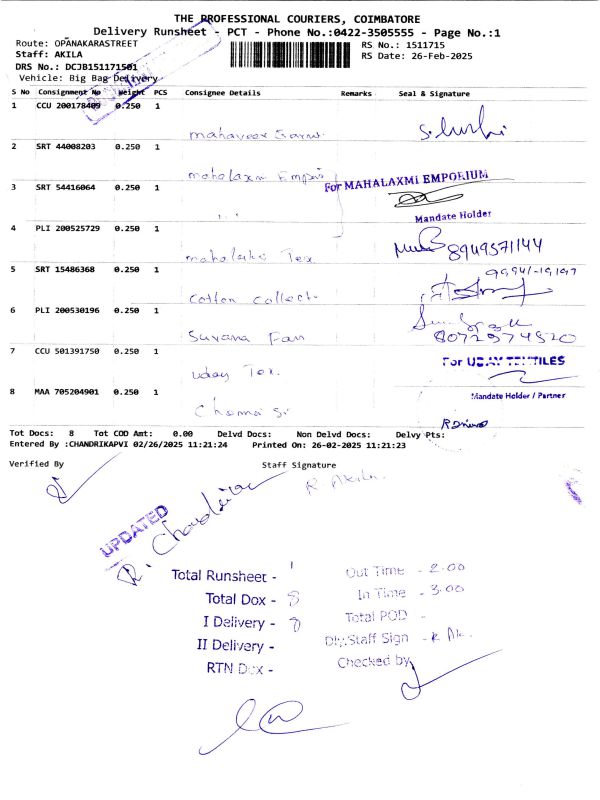 THE PROFESSIONAL COURIERS, COIMBATORE
Delivery Runsheet - PCT - Phone No.:0422-3505555 - Page No.:1
Route: OPANAKARASTREET
RS No.: 1511715
Staff: AKILA
RS Date: 26-Feb-2025
DRS No.: DCJB151171501
Vehicle: Big Bag Delivery
S No Consignment No Weight PCS Consignee Details Remarks Seal & Signature
1 CCU 200178409 0.250 1
mahaveer
2 SRT 44008203 0.250 1
mahalaxmi
For MAHALAXMI EMPORIUM
3 SRT 54416064 0.250 1
Mandate Holder
4 PLI 200525729 0.250 1
8949571144
Tex
5 SRT 15486368 0.250 1
Cotton Collect
6 PLI 200530196 0.250 1
Suvana Fan
7 CCU 501391750 0.250 1
For UDAY TEXTILES
Uday Tex.
8 MAA 705204901 0.250 1
Mandate Holder / Partner
Tot Docs: 8 Tot COD Amt: 0.00 Delvd Docs: Non Delvd Docs: Delvy Pts:
Entered By :CHANDRIKAPVI 02/26/2025 11:21:24 Printed On: 26-02-2025 11:21:23
Verified By Staff Signature
R Akila
UPDATED
Total Runsheet - 1
Out Time - 2.00
Total Dox - 8
In Time - 3.00
I Delivery - 8
Total POD -
II Delivery -
Dly.Staff Sign - R Ak.
RTN Dox -
Checked by